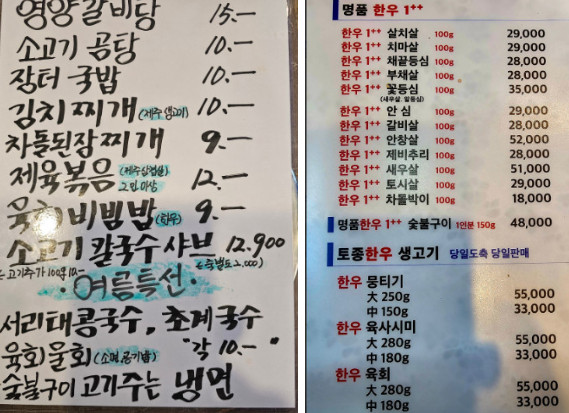 영양갈비탕 15.-
소고기 곰탕 10.-
장터 국밥 10.-
김치찌개 (제주 생고기) 10.-
차돌된장찌개 9.-
제육볶음 (제주삼겹살) 2인이상 12.-
육회비빔밥 (한우) 9.-
소고기 칼국수 샤브 12.900
고기추가 100g 10.-
·여름특선·
서리태콩국수, 초계국수
육회물회 (소면,공기밥) "각 10.-"
숯불구이 고기주는 냉면
명품 한우 1++
한우 1++ 살치살 100g 29,000
한우 1++ 치마살 100g 29,000
한우 1++ 채끝등심 100g 28,000
한우 1++ 부채살 100g 28,000
한우 1++ 꽃등심 100g 35,000
(새우살, 알등심)
한우 1++ 안 심 100g 29,000
한우 1++ 갈비살 100g 28,000
한우 1++ 안창살 100g 52,000
한우 1++ 제비추리 100g 28,000
한우 1++ 새우살 100g 51,000
한우 1++ 토시살 100g 29,000
한우 1++ 차돌박이 100g 18,000
명품한우 1++ 숯불구이 1인분 150g 48,000
토종한우 생고기 당일도축 당일판매
한우 뭉티기
大 250g 55,000
中 150g 33,000
한우 육사시미
大 280g 55,000
中 180g 33,000
한우 육회
大 280g 55,000
中 180g 33,000